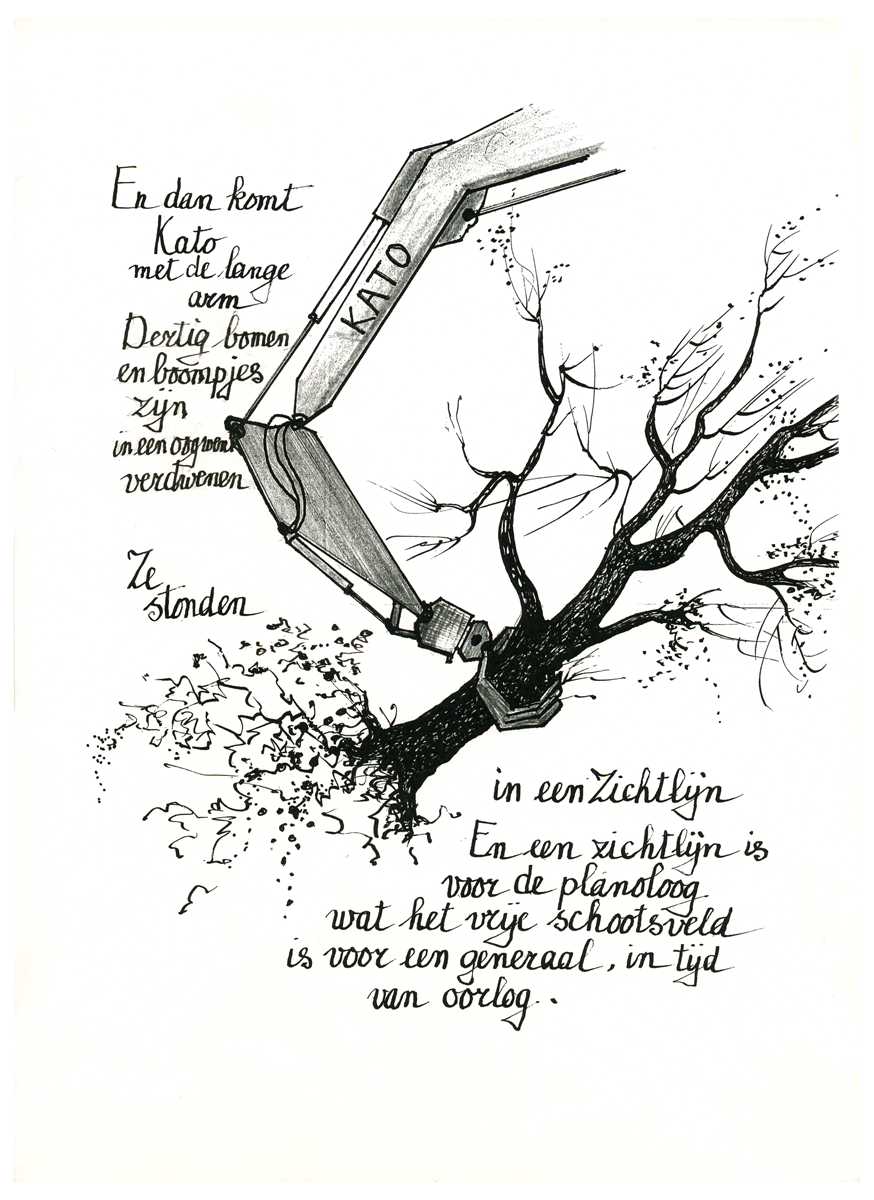 En dan komt
Kato
met de lange
arm
Dertig bomen
en boompjes
zijn
in een oogwenk
verdwenen
KATO
Ze
stonden
in een Zichtlijn
En een zichtlijn is
voor de planoloog
wat het vrije schootsveld
is voor een generaal, in tijd
van oorlog.